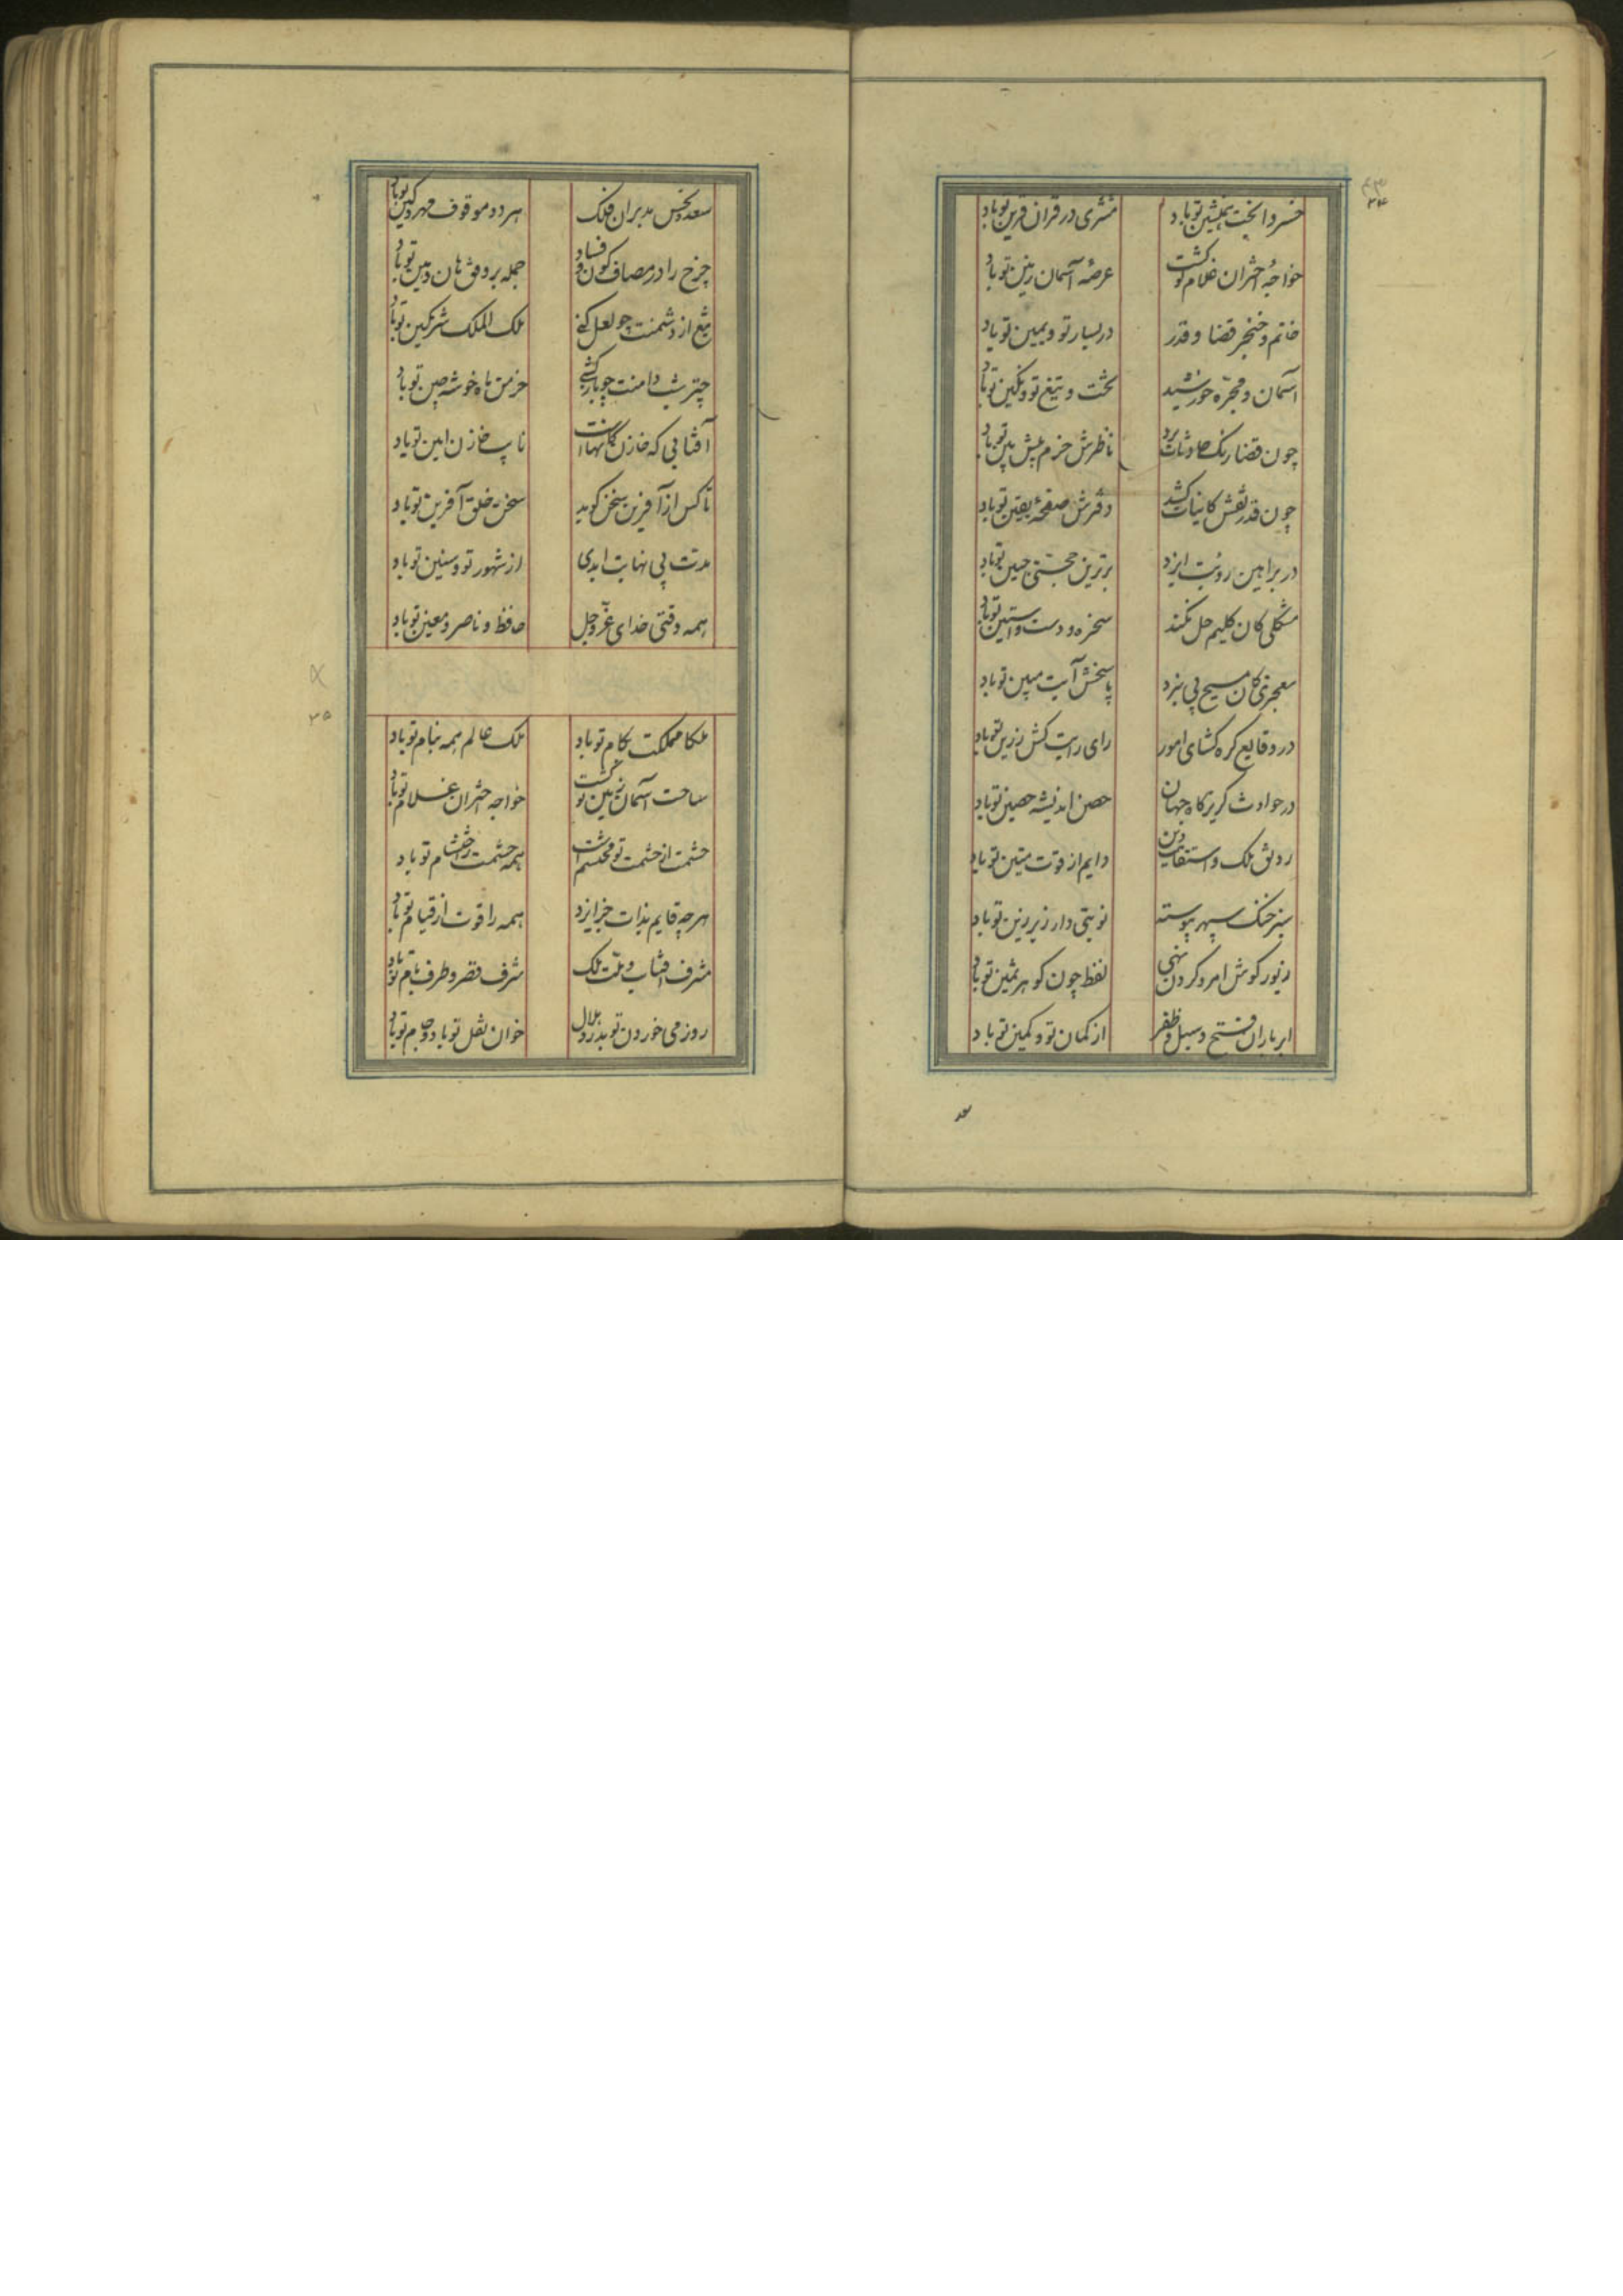 خسروا بخت همنشین تو باد مشتری در قران قرین تو باد
خواجهٔ اختران غلام تو گشت عرصهٔ آسمان زمین تو باد
خاتم و خنجر قضا و قدر در یسار تو و یمین تو باد
آسمان و مجره خورشید تخت و تیغ تو و نگین تو باد
چون قضا رنک حادثات برد ناظرش حزم پیش بین تو باد
چون قدر نقش کاینات کشد دفترش صفحهٔ یقین تو باد
در براهین رویت ایزد برترین حجتی جبین تو باد
مشکلی کان کلیم حل نکند سخره دست و آستین تو باد
معجزی کان مسیح پی نبرد پاسخش آیت مبین تو باد
در وقایع گره کشای امور رای رایت کش رزین تو باد
در حوادث گریزگاه جهان حصن اندیشه حصین تو باد
رونق ملک و استقامت دین دایم از قوت متین تو باد
سبز خنک سپهر پیوسته نوبتی دار زیر زین تو باد
زیور گوش امر و گردن نهی لفظ چون گوهر ثمین تو باد
ابر باران فتح و سیل ظفر از کمان تو و کمین تو باد
سعد و نحس مدبران فلک هر دو موقوف مهر و کین تو باد
چرخ را در مصاف کون و فساد جمله بر وفق هان و هین تو باد
تیغ از دشمنت چو لعل کنی ملک الملک شرمگین تو باد
چتر شب دامنت چو باز کشی خرمن ماه خوشه چین تو باد
آفتابی که خازن کانهاست نایب خازن امین تو باد
تا کس از آفرین سخن گوید سخن خلق آفرین تو باد
مدت بی نهایت ابدی از شهور تو و سنین تو باد
همه وقتی خدای عز و جل حافظ و ناصر و معین تو باد
ملکا مملکت بکام تو باد ملک عالم همه بنام تو باد
ساحت آسمان زمین تو گشت خواجه اختران غلام تو باد
حشمت از حشمت تو محتشم است همه حشمت ز احتشام تو باد
هر چه قایم بذات جز ایزد همه را قوت از قیام تو باد
مشرف آفتاب و ملت ملک شرف قصر و طرف بام تو باد
روز می خوردن تو بدر و هلال خوان نقل تو باد و جام تو باد
۳۴
۳۵